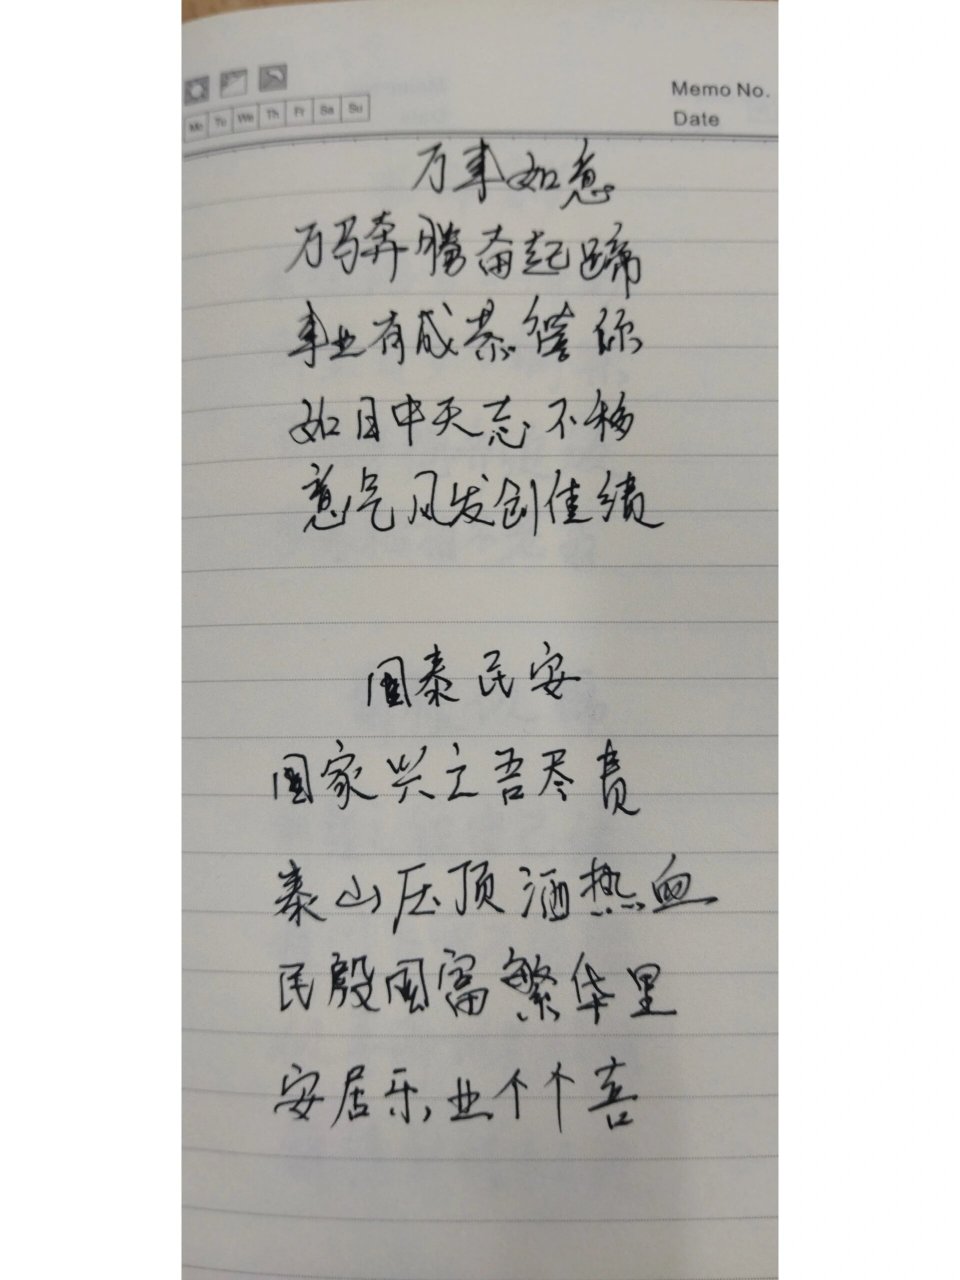 Memo No.
Mo Tu We Th Fr Sa Su
Date
万事如意
万马奔腾奋起蹄
事业有成恭候你
如日中天志不移
意气风发创佳绩
国泰民安
国家兴亡吾尽责
泰山压顶洒热血
民殷国富繁华里
安居乐业个个喜